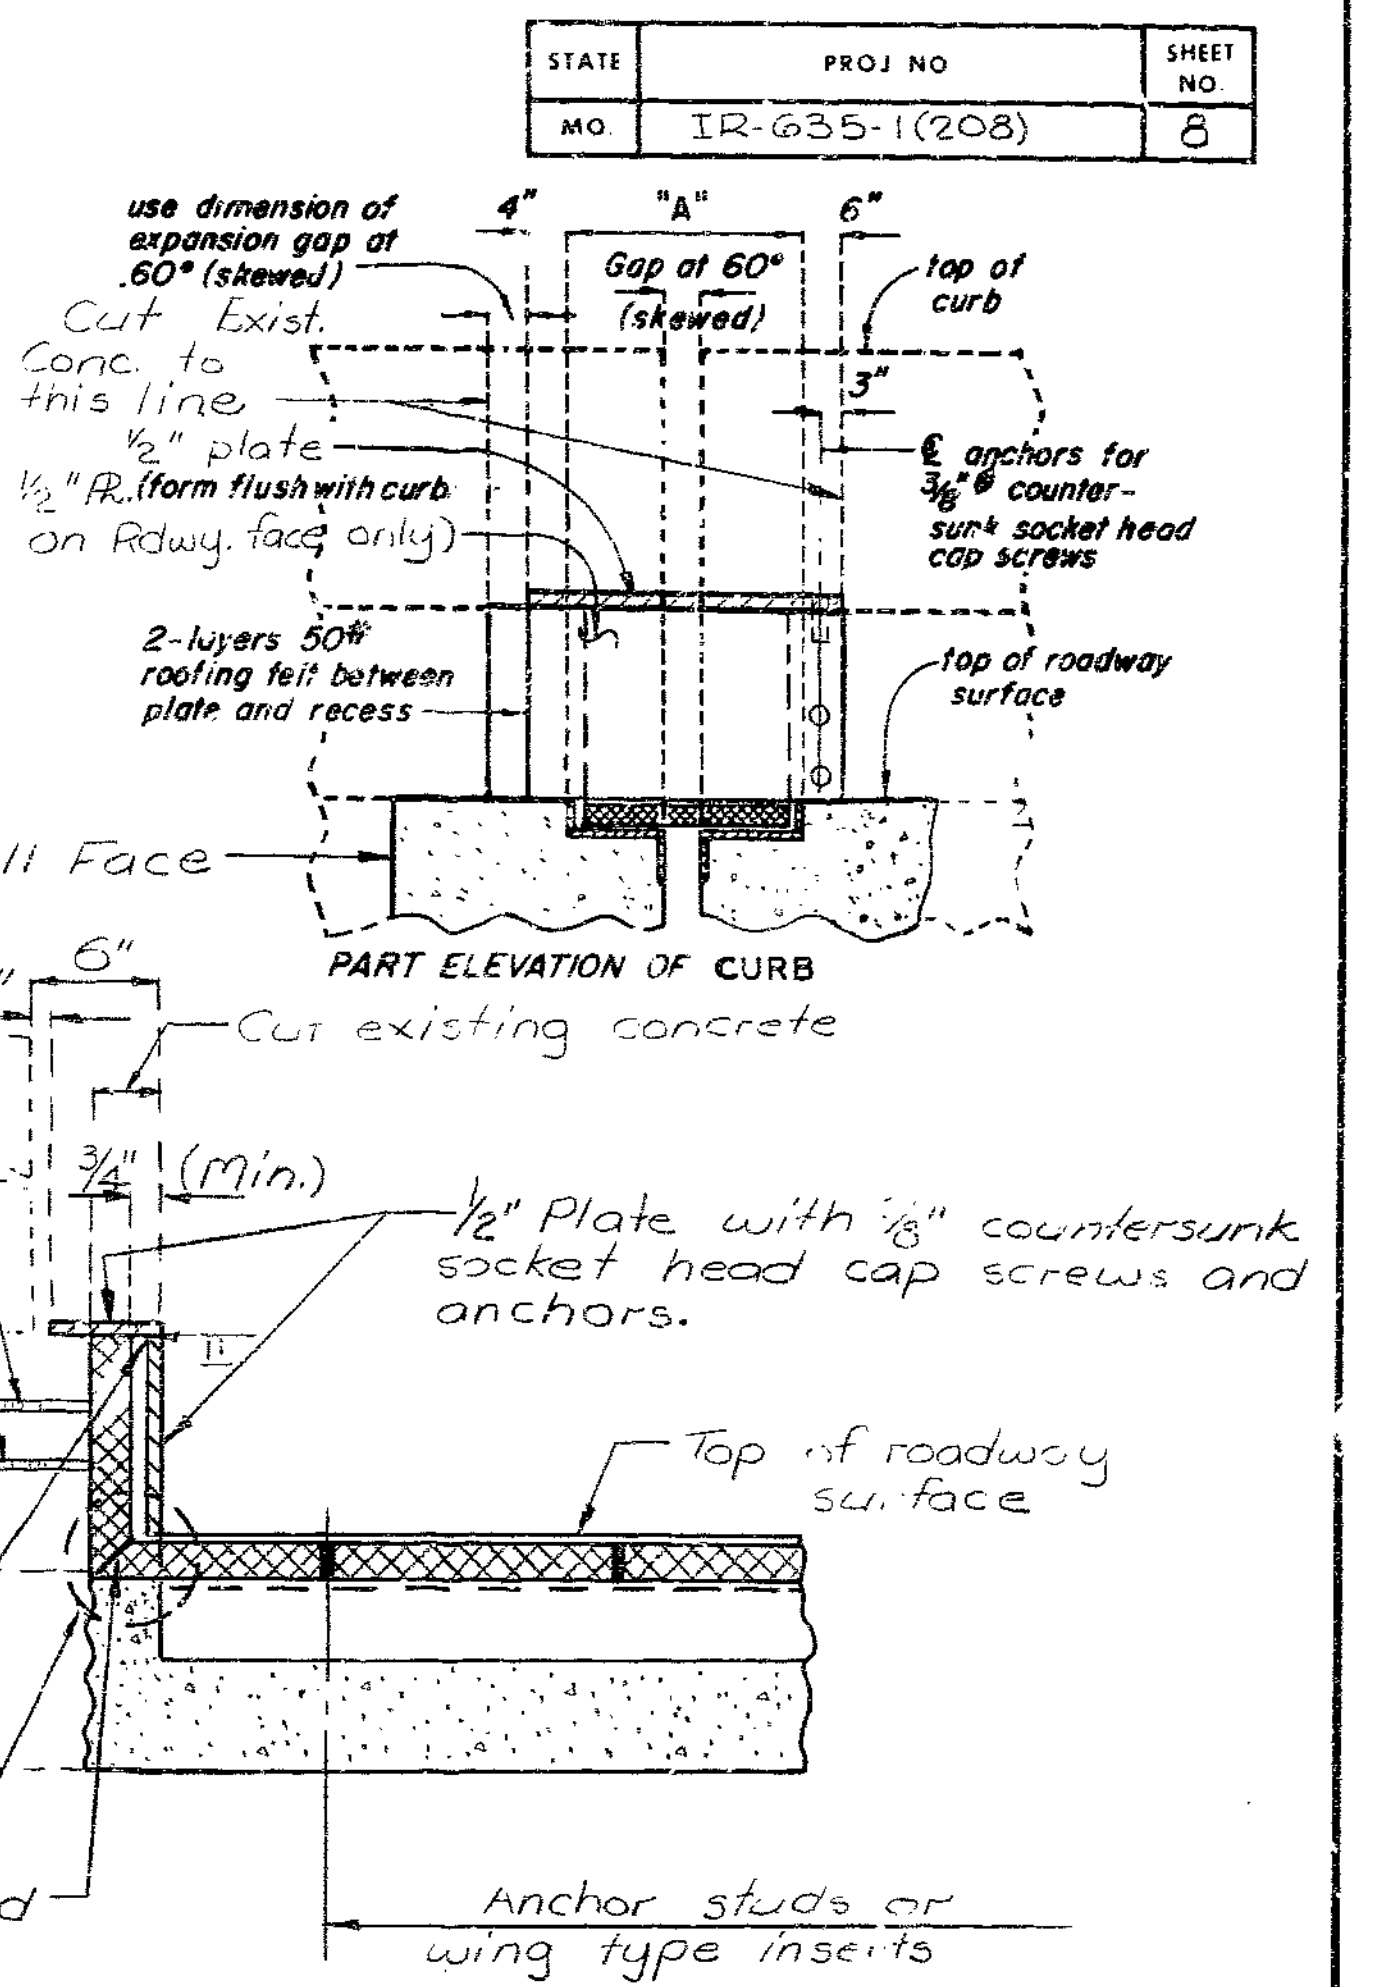 STATE PROJ NO SHEET NO.
MO. IR-635-1(208) 8
use dimension of
expansion gap at
60° (skewed)
4"
"A"
6"
Gap at 60°
(skewed)
top of
curb
Cut Exist.
Conc. to
this line
3"
1/2" plate
1/2" PL. (form flush with curb
on Rdwy. face only)
℄ anchors for
3/8" φ counter-
sunk socket head
cap screws
2-layers 50#
roofing felt between
plate and recess
top of roadway
surface
Face
PART ELEVATION OF CURB
6"
Cut existing concrete
3/4" (Min.)
1/2" Plate with countersunk
socket head cap screws and
anchors.
Top of roadway
surface
Anchor studs or
wing type inserts